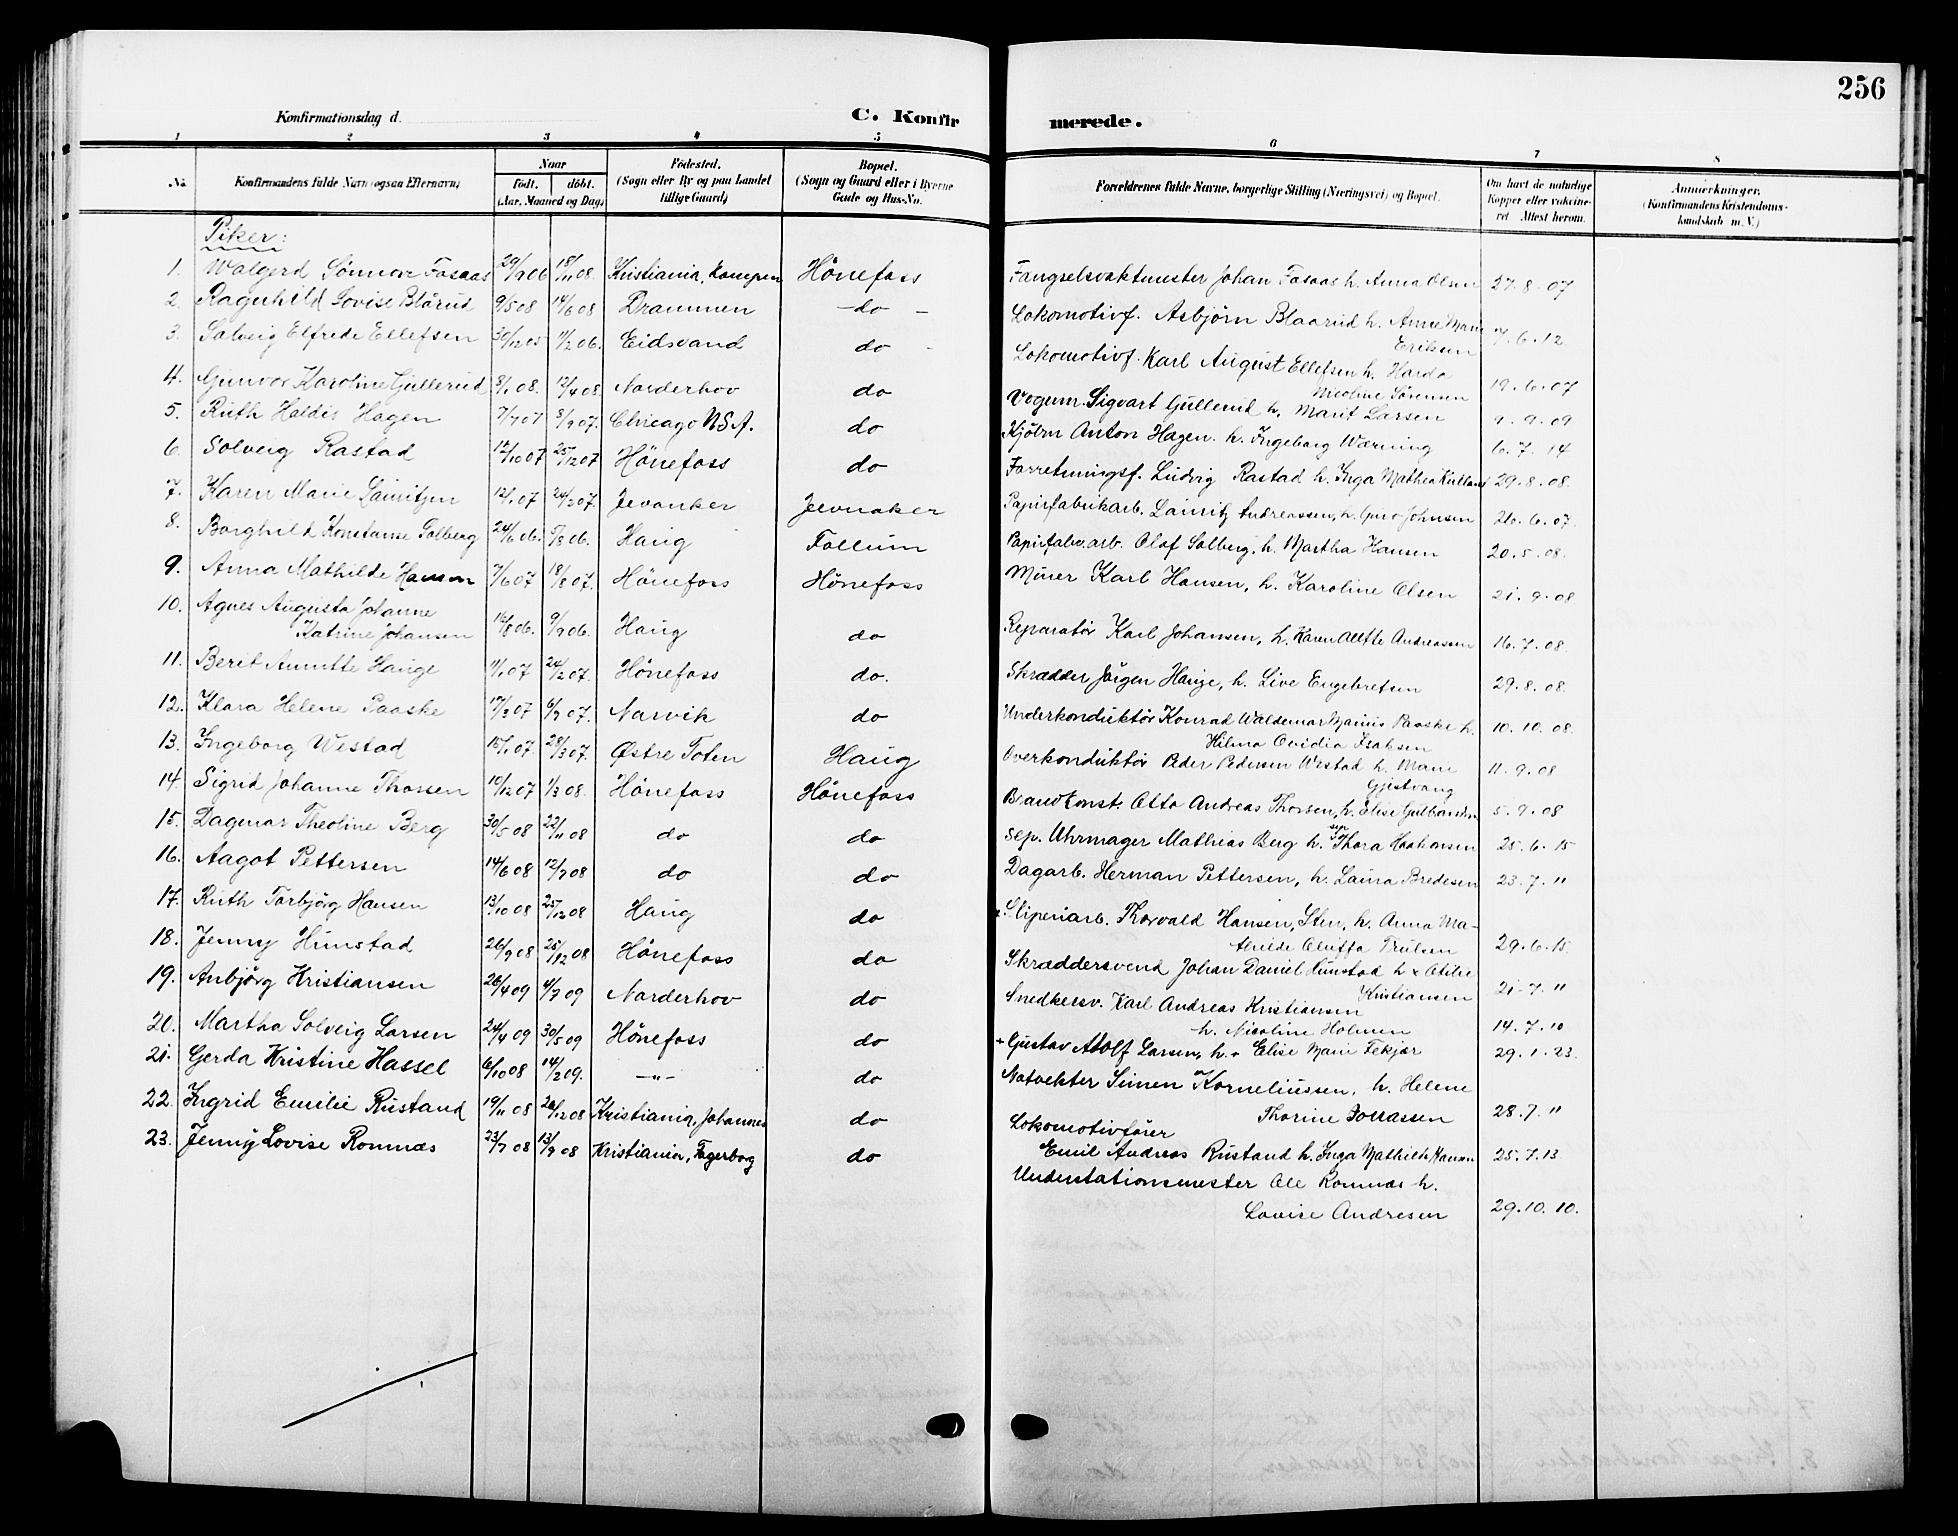 256
Konfirmationsdag d.
C. Konfir merede.
1 2 3 4 5 6 7 8
No.
Konfirmandens fulde Navn (ogsaa Efternavn)
Naar
født. døbt.
(Aar, Maaned og Dag)
Fødested.
(Sogn eller By og paa Landet
tillige Gaard)
Bopæl.
(Sogn og Gaard eller i Byerne
Gade og Hus-No.
Forældrenes fulde Navne, borgerlige Stilling (Næringsvei) og Bopæl.
Om havt de naturlige
Kopper eller vakcine-
ret Attest herom.
Anmærkninger.
(Konfirmandens Kristendoms-
kundskab m. V.)
Piker:
1. Walgerd Sönnove Fasaas 29/9 06 18/11 08. Kristiania, Kampen Hönefoss Fængselsvaktmester Johan Fasaas h. Anna Olsen 27.8.07
2. Ragnhild Lovise Blårud 9/5 08 14/6 08 Drammen - do - Lokomotivf. Asbjörn Blaarud h. Anne Marie
Eriksen 7.6.12
3. Solveig Elfrede Ellefsen 30/12 05 11/2 06. Eidsvand do - Lokomotivf. Karl August Ellefsen h. Harda
Nicoline Sörensen 19.6.07
4. Gunvor Karoline Gullerud 8/1 08. 12/4 08 Norderhov do Vognm. Sigvart Gullerud h. Marit Larsen 9.9.09
5. Ruth Haldis Hagen 7/7 07 8/9 07. Chicago U.S.A. do Kjöbm Anton Hagen. h. Ingeborg Wærning 6.7.14
6. Solveig Rastad 12/10 07 25/12 07 Hönefoss do Forretningsf. Ludvig Rastad h. Inga Mathea 29.8.08.
7. Karen Marie Lauritzen 12/1 07 24/2 07. Jevnaker Jevnaker Papirfabrikarb. Lauritz Andreassen, h. Guro Johnsen 26.6.07.
8. Borghild Konstanse Solberg 24/6 06. 5/8 06. Haug Follum Papirfabr.arb. Olaf Solberg, h. Martha Hansen 20.5.08.
9. Anna Mathilde Hansen 7/6 07 18/8 07. Hönefoss Hönefoss Murer Karl Hansen, h. Karoline Olsen 21.9.08
10. Agnes Augusta Johanne
Katrine Johansen 16/8 06. 9/9 06. Haug do Reparatör Karl Johansen, h. Karen Alette Andreassen 16.7.08.
11. Berit Annette Hauge 11/1 07 24/2 07. Hönefoss do. Skrædder Jörgen Hauge, h. Live Engebretsen 29.8.08.
12. Klara Helene Paaske 17/3 07 6/9 07. Narvik do Underkonduktör Konrad Waldemar Paaske h.
Hilma Ovidia 10.10.08.
13. Ingeborg Westad 15/1 07 28/3 07. Østre Toten Haug Overkonduktör Peder Pedersen Westad h. Marie
Gjestvang 11.9.08
14. Sigrid Johanne Thorsen 10/12 07 1/3 08. Hönefoss Hönefoss Brandkonst. Otto Andreas Thorsen, h. Elise Gulbrandsen 5.9.08
15. Dagmar Theoline Berg 30/5 08 22/11 08 do do Sep. Uhrmager Mathias Berg h. sep. Thora Haakensen 25.6.15
16. Aagot Pettersen 14/6 08 12/7 08 do do Dagarb. Herman Pettersen, h. Laura Bredesen 23.7.11
17. Ruth Torbjörg Hansen 13/10 08 25/12 08 Haug do + Sliperiarb. Thorvald Hansen, Sten, h. Anna Ma-
thilde Oluffa Trulsen 29.6.15
18. Jenny Hunstad 26/9 08 25/12 08 Hönefoss do Skræddersvend Johan Daniel Hunstad h. + Otilie
Kristiansen 21.7.11
19. Anbjörg Kristiansen 26/4 09 4/7 09 Norderhov do Snedkersv. Karl Andreas Kristiansen
h. Nicoline Holmen 14.7.10
20. Martha Solveig Larsen 24/4 09 30/5 09 Hönefoss do + Gustav Adolf Larsen, h. + Elise Marie Fekjær 29.1.23.
21. Gerda Kristine Hassel 6/10 08 14/2 09. -"- do Natvekter Simen Korneliussen, h. Helene
Thorine 28.7.11
22. Ingrid Emilie Rustand 19/11 08 26/12 08 Kristiania, Johannes do Lokomotivförer
Emil Andreas Rustand h. Inga Mathilde Hansen 25.7.13
23. Jenny Lovise Romnæs 23/7 08 13/9 08 Kristiania, Fagerborg do Understationsmester Ole Romnæs h.
Lovise Andresen 29.10.10.